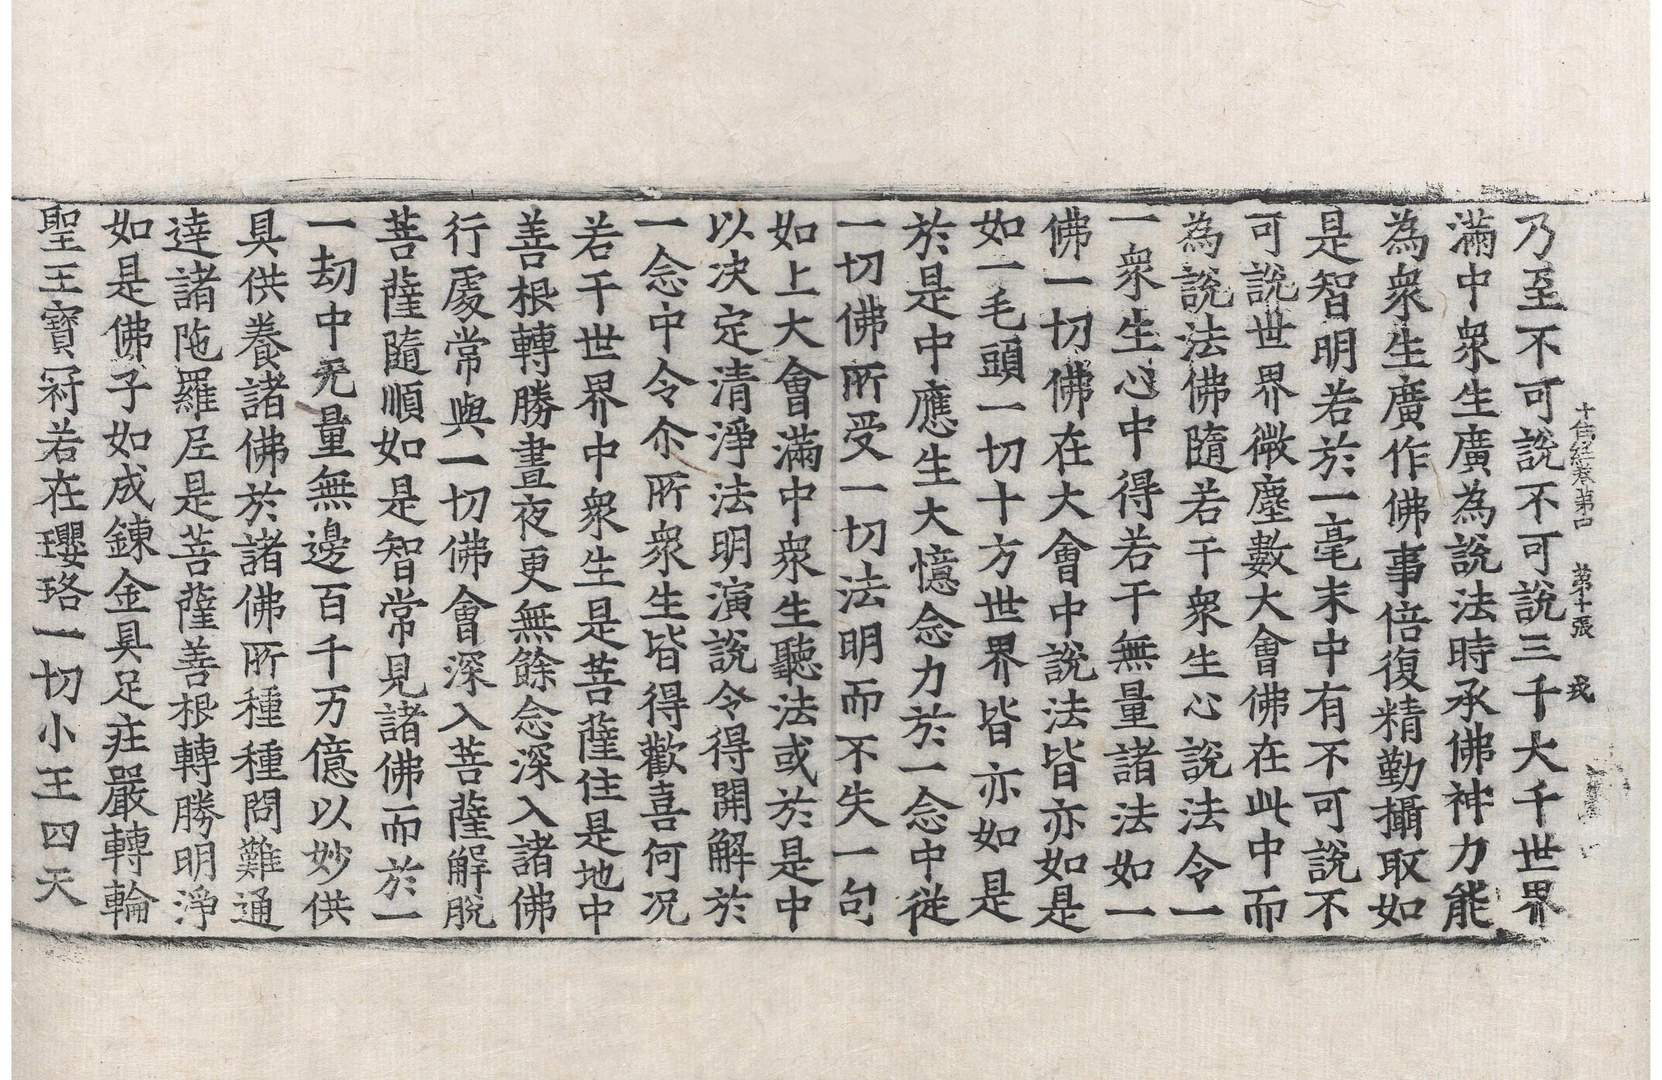 十住経巻第四　第十張　戎
乃至不可說不可說三千大千世界
滿中衆生廣為說法時承佛神力能
為衆生廣作佛事倍復精勤攝取如
是智明若於一毫末中有不可說不
可說世界微塵數大會佛在此中而
為說法佛隨若干衆生心說法令一
一衆生心中得若干無量諸法如一
佛一切佛在大會中說法皆亦如是
如一毛頭一切十方世界皆亦如是
於是中應生大憶念力於一念中従
一切佛所受一切法明而不失一句
如上大會滿中衆生聽法或於是中
以决定清淨法明演說令得開解於
一念中令尒所衆生皆得歡喜何况
若干世界中衆生是菩薩住是地中
善根轉勝晝夜更無餘念深入諸佛
行處常與一切佛會深入菩薩解脫
菩薩隨順如是智常見諸佛而於一
一劫中无量無邊百千万億以妙供
具供養諸佛於諸佛所種種問難通
達諸陁羅尼是菩薩善根轉勝明淨
如是佛子如成鍊金具足莊嚴轉輪
聖王寶冠若在瓔珞一切小王四天